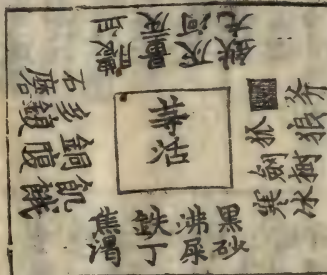 等活
黑砂
沸屎
鉄丁
焦渴
飢餓
銅鍑
多鍑
石磨
膿血
量火
灰河
鉄丸
斧
狼
劍樹
寒氷